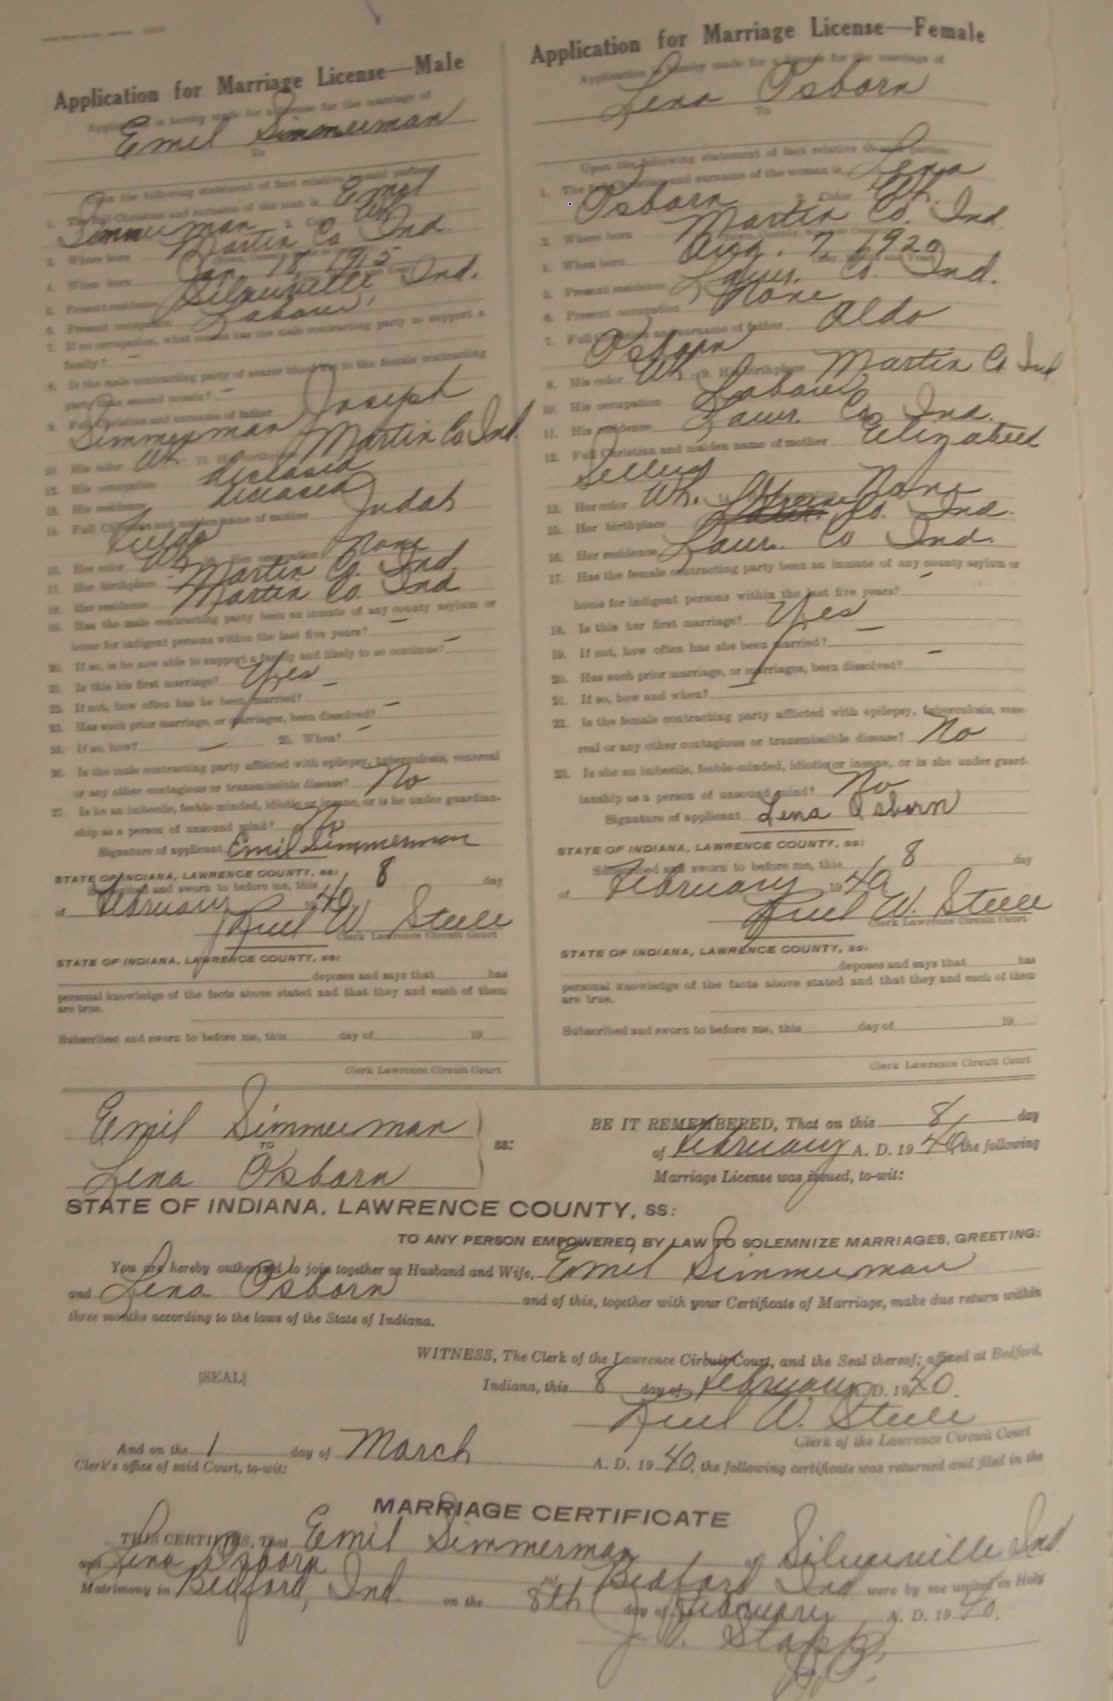 Application for Marriage License—Male
Application is hereby made for a license for the marriage of
Emil Simmerman
To
Upon the following statement of fact relative to said parties
1. The full Christian and surname of the man is Emil
Simmerman 2. Color Wh.
3. Where born Martin Co Ind
4. When born Jan. 18
5. Present residence Silverville Ind.
6. Present occupation Laborer
7. If no occupation, what means has the male contracting party to support a
family? —
8. Is the male contracting party of nearer blood kin to the female contracting
party than second cousin? —
9. Full Christian and surname of father Joseph
Simmerman
10. His color Wh 11. His birthplace Martin Co Ind.
12. His occupation deceased
13. His residence deceased
14. Full Christian and maiden name of mother Judah
15. Her color Wh 16. Her occupation None
17. Her birthplace Martin Co. Ind
18. Her residence Martin Co. Ind
19. Has the male contracting party been an inmate of any county asylum or
home for indigent persons within the last five years? —
20. If so, is he now able to support a family and likely to so continue? —
21. Is this his first marriage? Yes
22. If not, how often has he been married? —
23. Has such prior marriage, or marriages, been dissolved? —
24. If so, how? — 25. When? —
26. Is the male contracting party afflicted with epilepsy, tuberculosis, venereal
or any other contagious or transmissible disease? No
27. Is he an imbecile, feeble-minded, idiotic or insane, or is he under guardian-
ship as a person of unsound mind? No
Signature of applicant Emil Simmerman
STATE OF INDIANA, LAWRENCE COUNTY, ss:
Subscribed and sworn to before me, this 8 day
of February 1940
Ruel W. Steele
Clerk Lawrence Circuit Court
STATE OF INDIANA, LAWRENCE COUNTY, ss:
deposes and says that has
personal knowledge of the facts above stated and that they and each of them
are true.
Subscribed and sworn to before me, this day of 19
Clerk Lawrence Circuit Court
Application for Marriage License—Female
Application is hereby made for a license for the marriage of
Lena Osborn
To
Upon the following statement of fact relative to said parties
1. The full Christian and surname of the woman is Lena
Osborn 2. Color Wh.
3. Where born Martin Co. Ind
4. When born Aug. 7 1920
5. Present residence Lawr. Co. Ind.
6. Present occupation None
7. Full Christian and surname of father Aldo
Osborn
8. His color Wh. 9. His birthplace Martin Co Ind
10. His occupation Laborer
11. His residence Lawr. Co. Ind.
12. Full Christian and maiden name of mother Elizabeth
13. Her color Wh. None
15. Her birthplace Co. Ind.
16. Her residence Lawr. Co Ind.
17. Has the female contracting party been an inmate of any county asylum or
home for indigent persons within the last five years? —
18. Is this her first marriage? Yes
19. If not, how often has she been married? —
20. Has such prior marriage, or marriages, been dissolved? —
21. If so, how and when? —
22. Is the female contracting party afflicted with epilepsy, tuberculosis, vene-
real or any other contagious or transmissible disease? No
23. Is she an imbecile, feeble-minded, idiotic or insane, or is she under guard-
ianship as a person of unsound mind? No
Signature of applicant Lena Osborn
STATE OF INDIANA, LAWRENCE COUNTY, ss:
Subscribed and sworn to before me, this 8 day
of February 1940
Ruel W. Steele
Clerk Lawrence Circuit Court
STATE OF INDIANA, LAWRENCE COUNTY, ss:
deposes and says that has
personal knowledge of the facts above stated and that they and each of them
are true.
Subscribed and sworn to before me, this day of 19
Clerk Lawrence Circuit Court
Emil Simmerman
TO
Lena Osborn
ss:
BE IT REMEMBERED, That on this 8 day
of February A. D. 1940, the following
Marriage License was issued, to-wit:
STATE OF INDIANA, LAWRENCE COUNTY, ss:
TO ANY PERSON EMPOWERED BY LAW TO SOLEMNIZE MARRIAGES, GREETING:
You are hereby authorized to join together as Husband and Wife, Emil Simmerman
and Lena Osborn and of this, together with your Certificate of Marriage, make due return within
three months according to the laws of the State of Indiana.
WITNESS, The Clerk of the Lawrence Circuit Court, and the Seal thereof; affixed at Bedford,
[SEAL] Indiana, this 8 day of February A. D. 1940.
Ruel W. Steele
Clerk of the Lawrence Circuit Court
And on the 1 day of March A. D. 1940, the following certificate was returned and filed in the
Clerk's office of said Court, to-wit:
MARRIAGE CERTIFICATE
THIS CERTIFIES, That Emil Simmerman of Silverville Ind.
and Lena Osborn of Bedford Ind were by me united in Holy
Matrimony in Bedford, Ind. on the 8th day of February A. D. 1940.